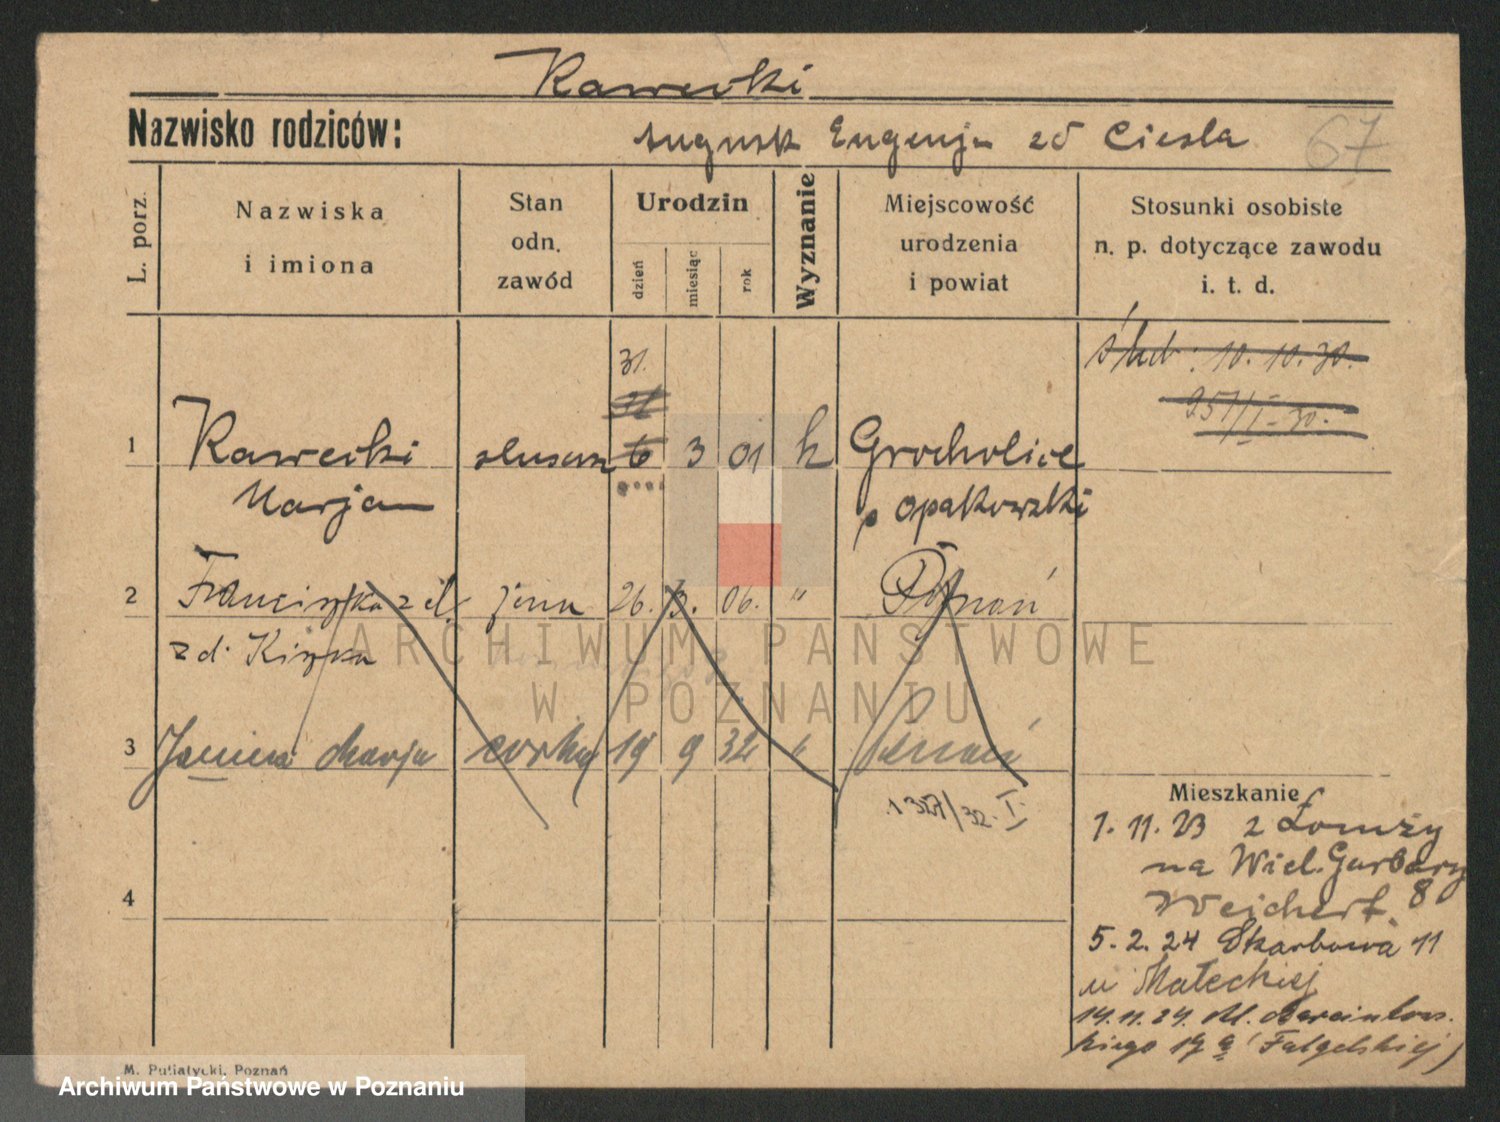 Kawecki
Nazwisko rodziców: August Eugenja zd Ciesla 67
L. porz.
Nazwiska
i imiona
Stan
odn.
zawód
Urodzin
dzień
miesiąc
rok
Wyznanie
Miejscowość
urodzenia
i powiat
Stosunki osobiste
n. p. dotyczące zawodu
i. t. d.
ślub: 10.10.30.
31.
1 Kawecki ślusarz 6 3 01 k Grocholice
Marjan p opatowski
2 Franciszka żona 26. 06. " Poznań
zd.
3 Janina Marja córka 19 9 32 " Poznań
Mieszkanie
1.11.23 z Łomży
na Wiel. Garbary
8
Weichert
5.2.24 Skarbowa 11
u Małeckiej
14.11.24. M. Marcinkows-
kiego 19
4
M. Putiatycki, Poznań
ARCHIWUM PAŃSTWOWE
W POZNANIU
Archiwum Państwowe w Poznaniu